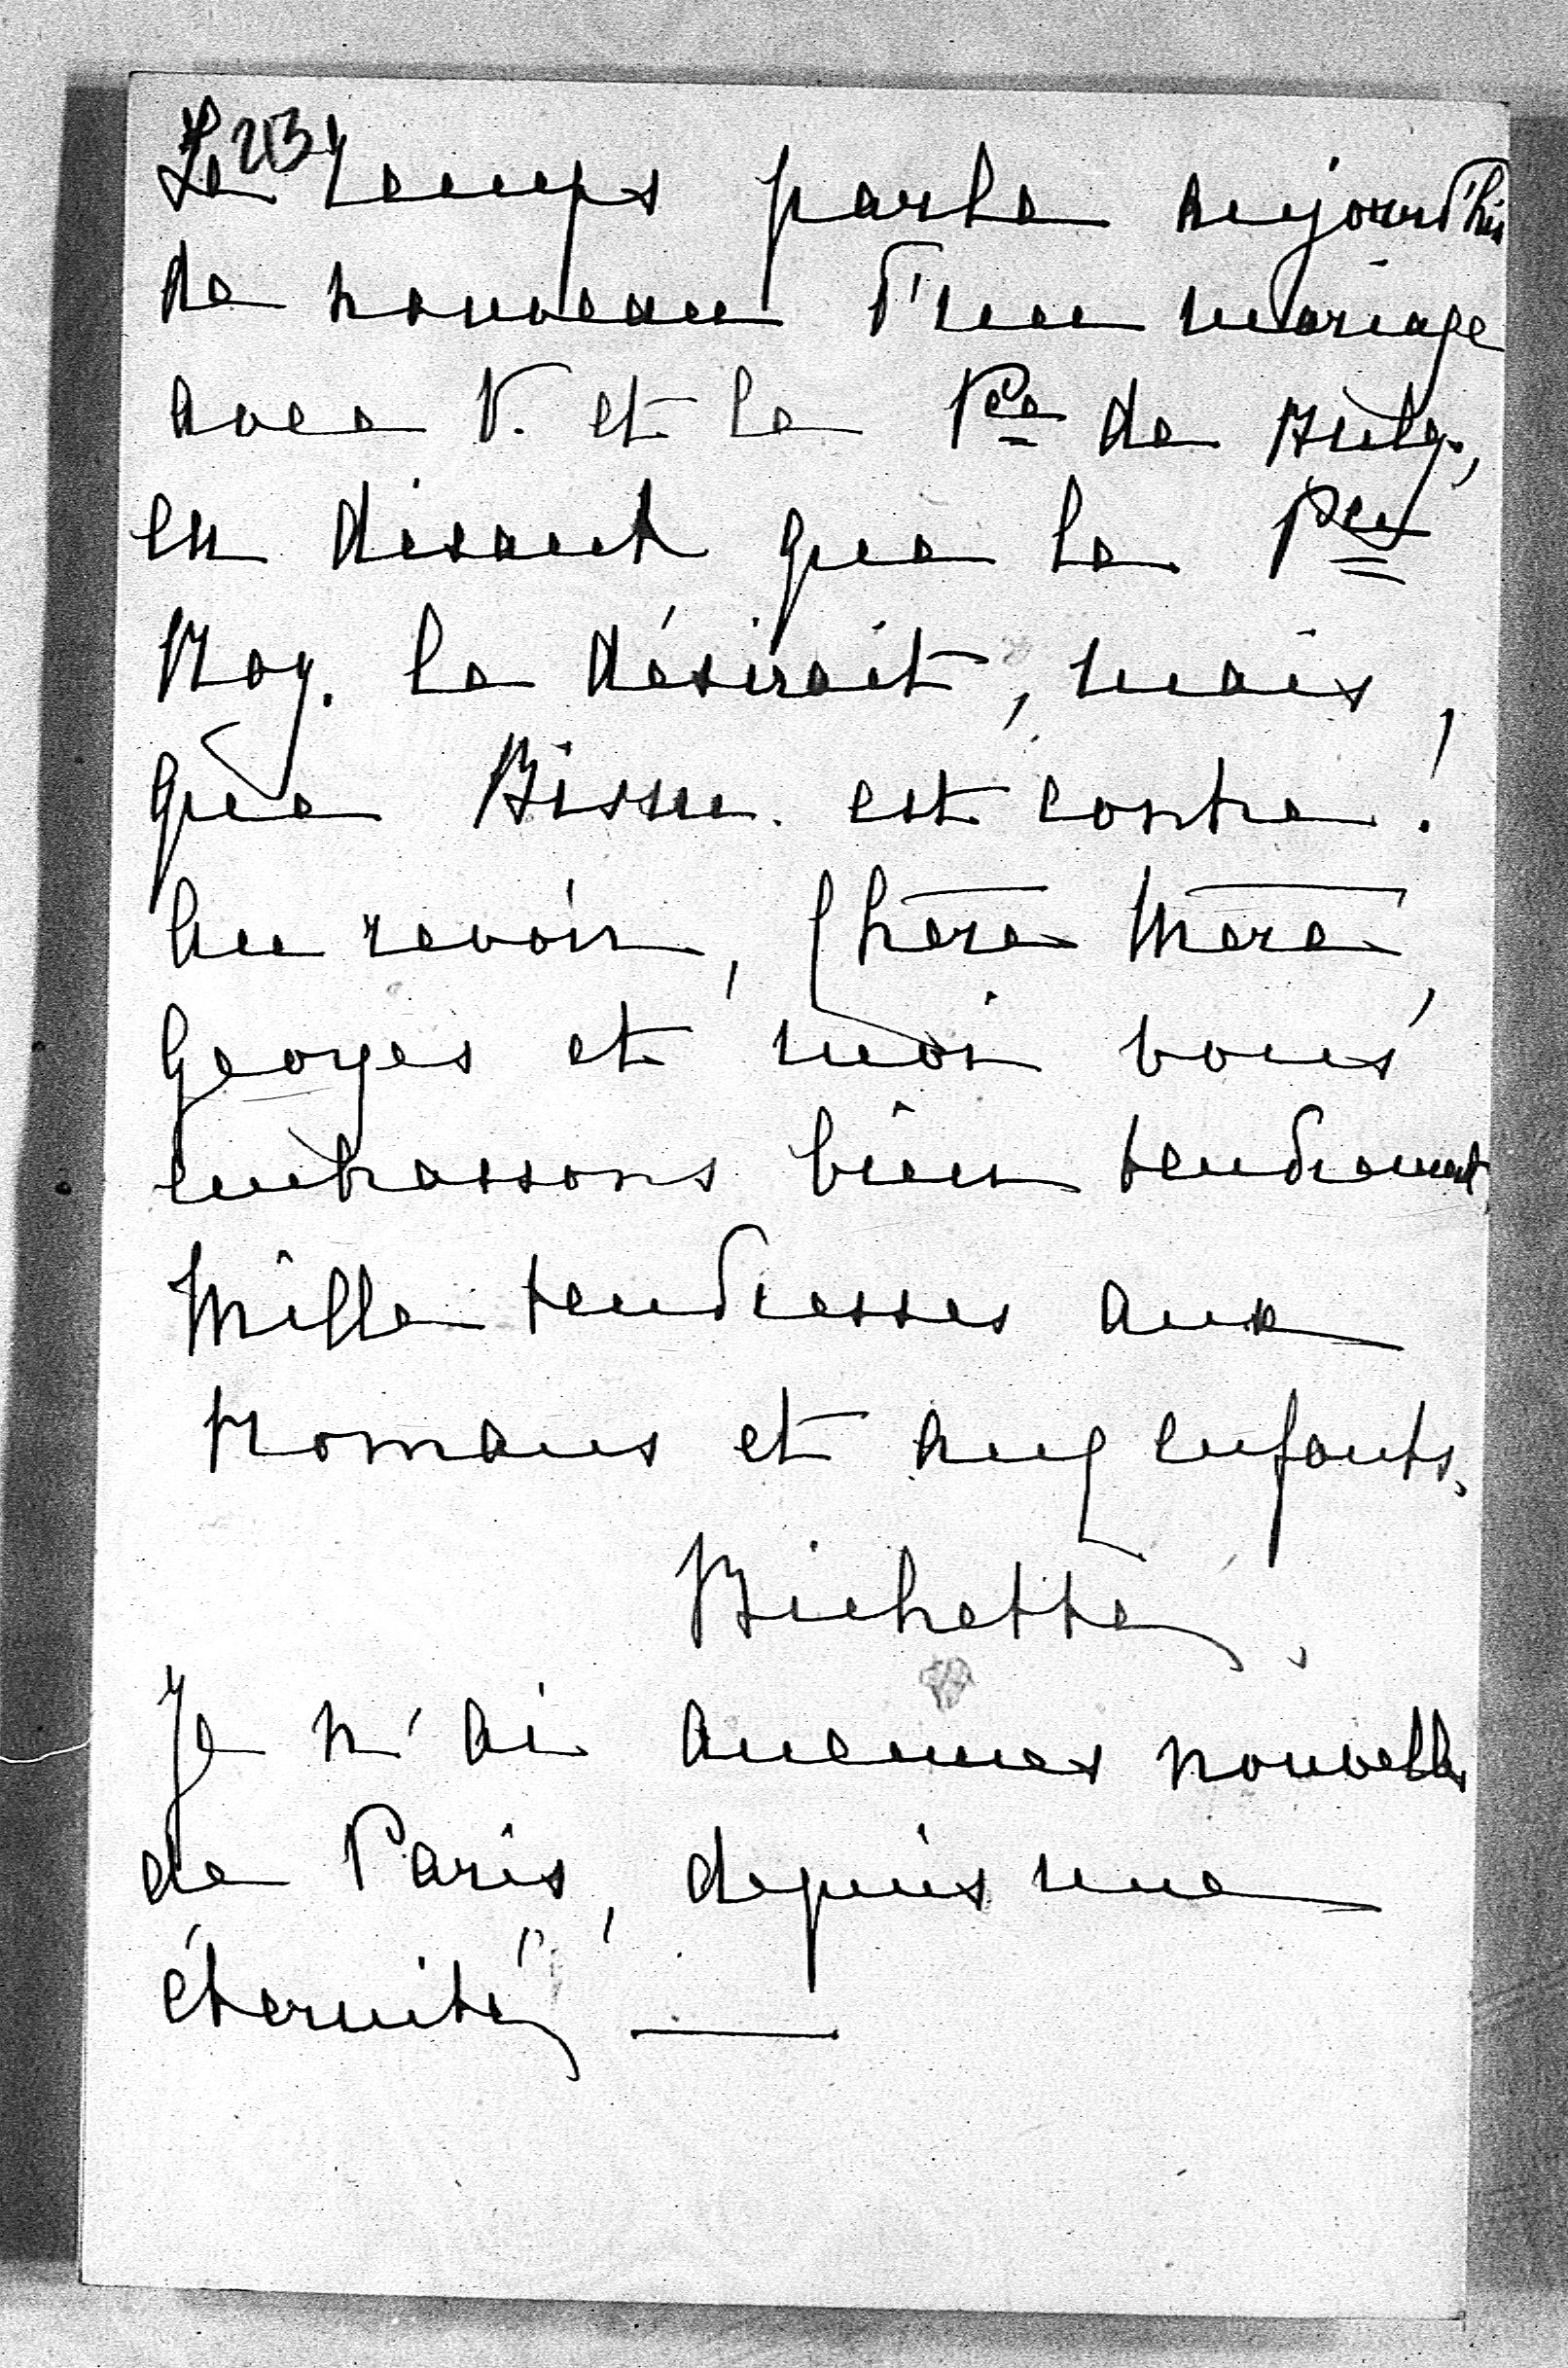 213
Le Temps parle aujourd'hui
de nouveau d'un mariage
avec V. et le Pce de Bulg.,
en disant que la Pce
Roy. le désirait, mais,
que Bism. est contre!
Au revoir, Chère Mère,
Georges et moi vous
embrassons bien tendrement
Mille tendresses aux
Romans et aux enfants.
Bichette.
Je n'ai aucunes nouvelles
de Paris, depuis une
éternité —